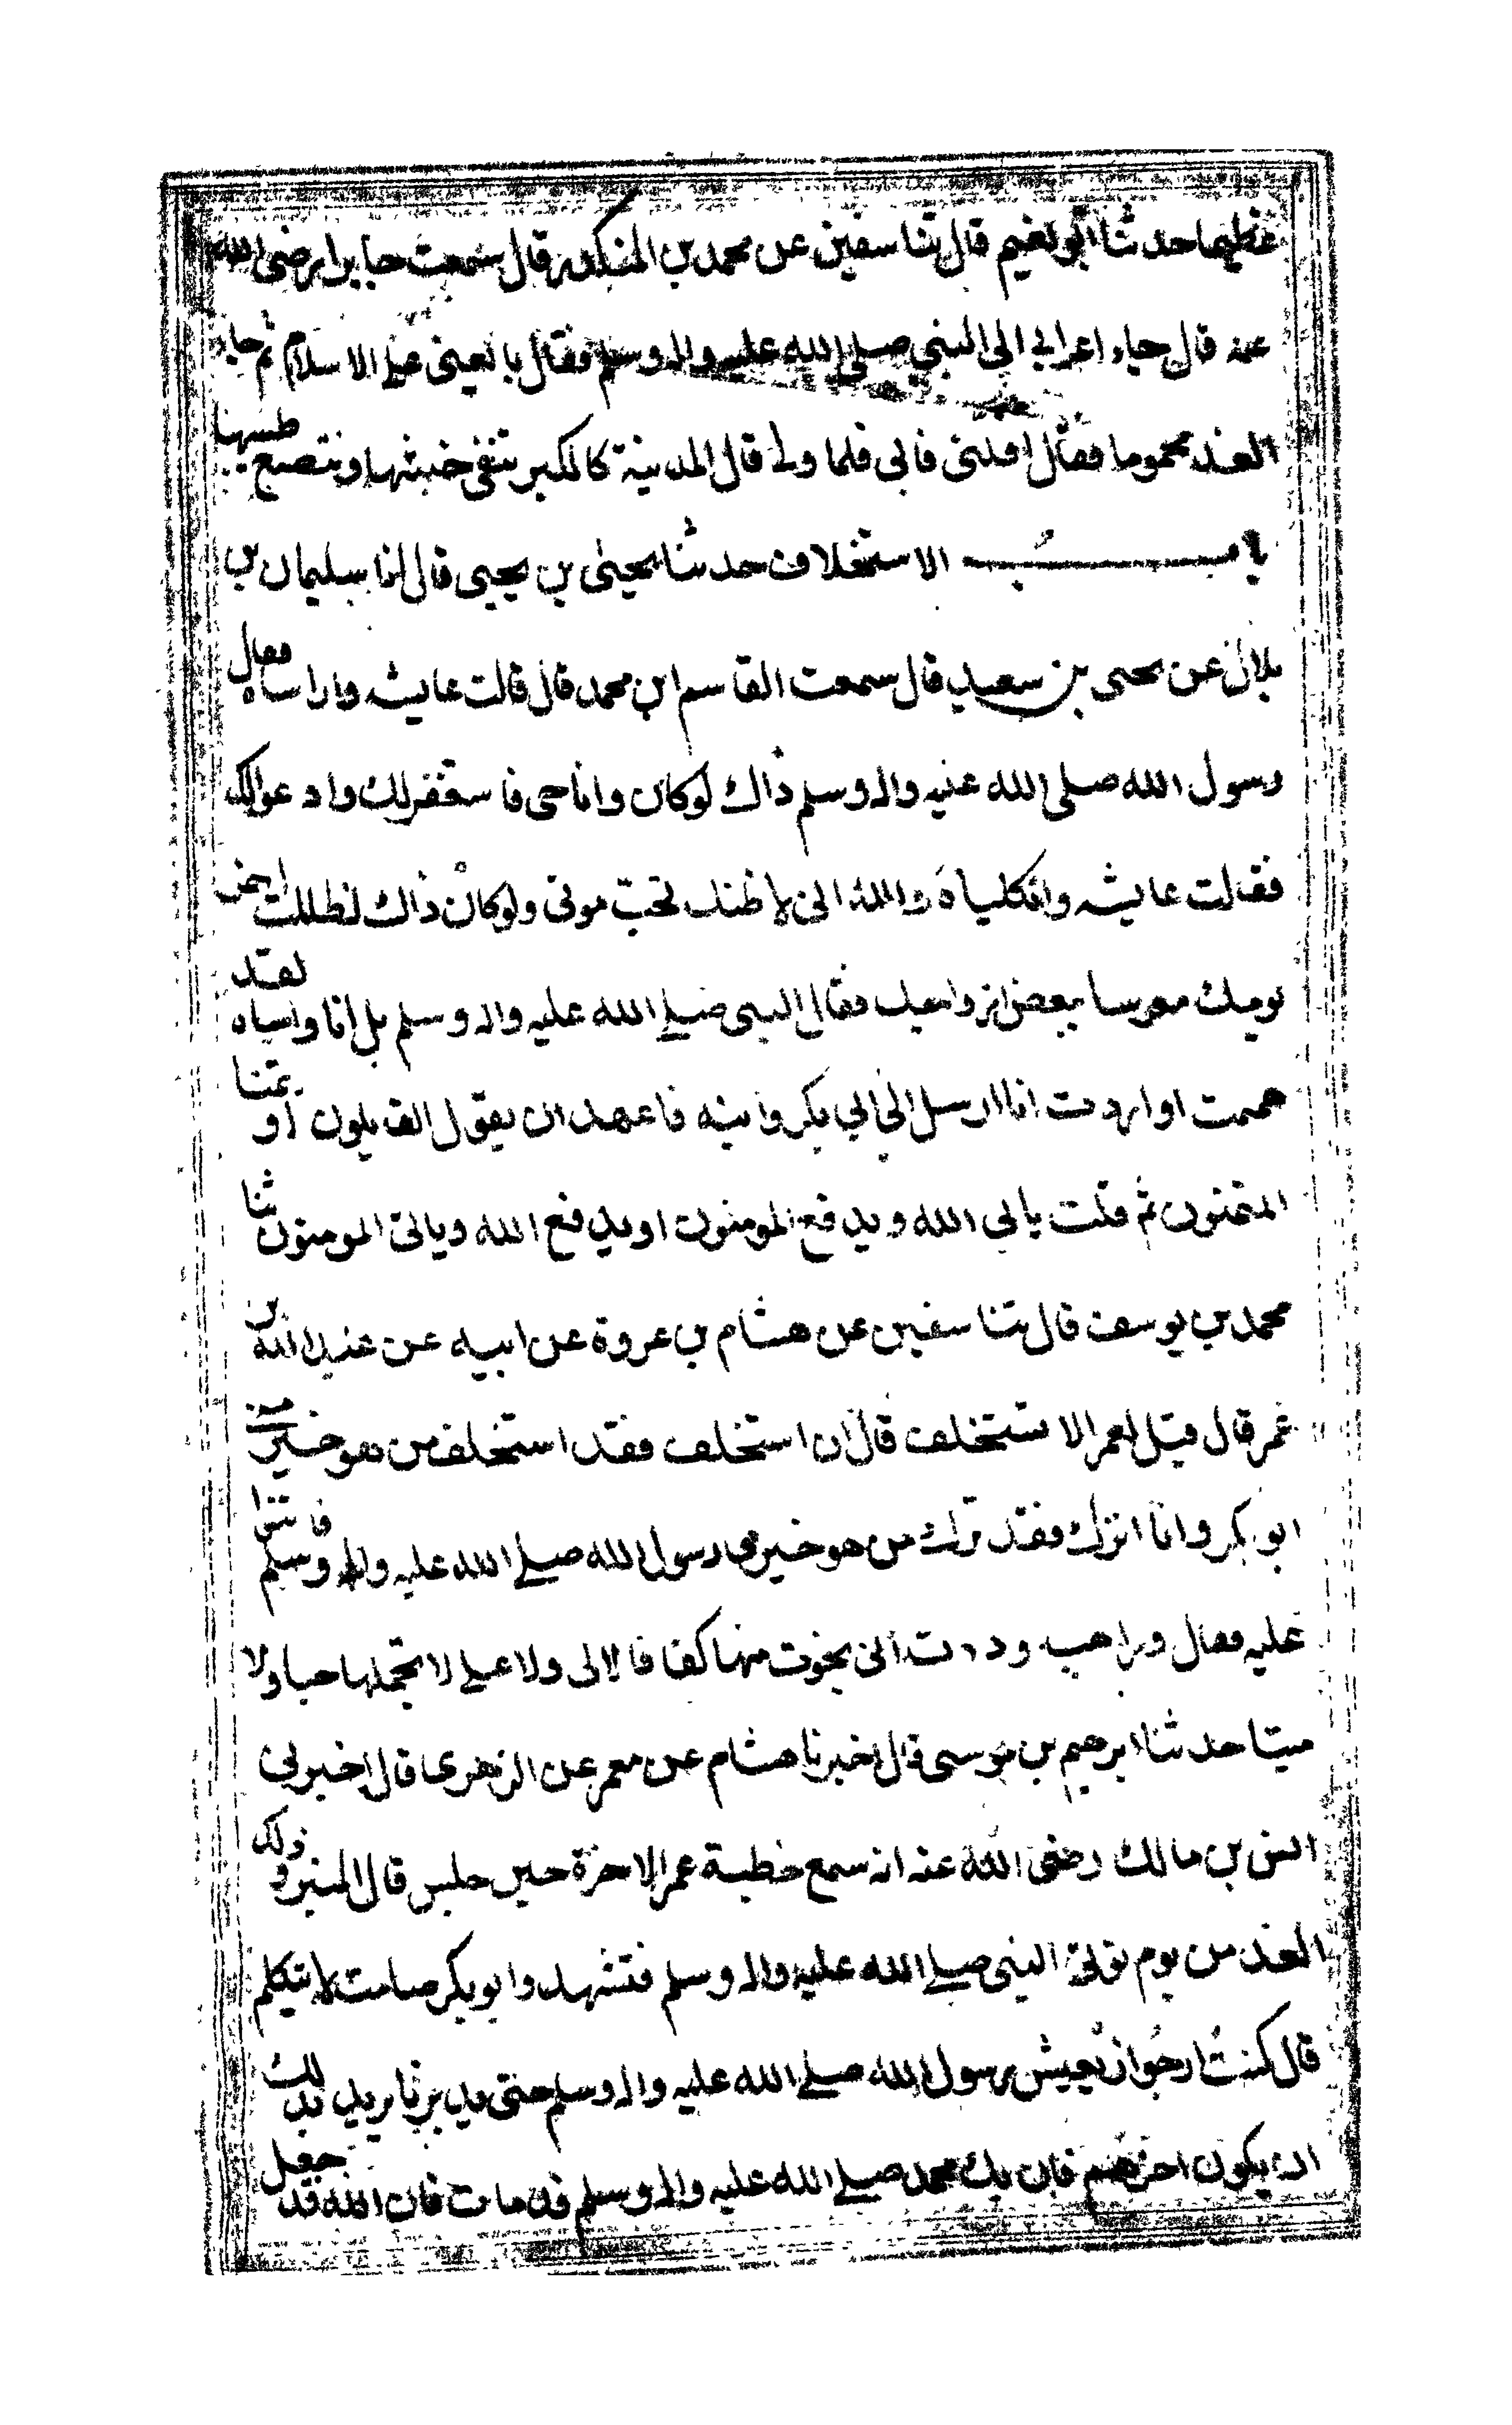 عظيما حدثنا ابو نعيم قال ثنا سفين عن محمد بن المنكدر قال سمعت جابرا رضى الله
عنه قال جاء اعرابي الى النبي صلى الله عليه واله وسلم فقال بايعنى على الاسلام ثم جاء
الغد محموما فقال اقلنى فابى فلما ولى قال المدينة كالكير تنفى خبثها وتنصع طيبها
باب الاستخلاف حدثنا يحيى بن يحيى قال انا سليمان بن
بلال عن يحيى بن سعيد قال سمعت القاسم ابن محمد قال قالت عايشه واراساه فقال
رسول الله صلى الله عليه واله وسلم ذاك لو كان وانا حى فاستغفر لك وادعو لك
فقالت عايشه واثكلياه والله انى لاظنك تحب موتى ولو كان ذاك لظللت اخر
يومك معرسا ببعض ازواجك فقال النبى صلى الله عليه واله وسلم بل انا واراساه لقد
هممت او اردت ان ارسل الى ابي بكر وابنه فاعهد ان يقول القايلون او يتمنا
المتمنون ثم قلت يابى الله ويدفع المومنون او يدفع الله ويابى المومنون ثنا
محمد بن يوسف قال ثنا سفين عن هشام بن عروة عن ابيه عن عبد الله بن
عمر قال قيل لعمر الا تستخلف قال ان استخلف فقد استخلف من هو خير منى
ابو بكر وان اترك فقد ترك من هو خير منى رسول الله صلى الله عليه واله وسلم فاثنوا
عليه فقال وراهب وددت انى نجوت منها كفافا لا لى ولا على لا تحملها حيا ولا
ميتا حدثنا ابرهيم بن موسى قال اخبرنا هشام عن معمر عن الزهرى قال اخبرنى
انس بن مالك رضى الله عنه انه سمع خطبة عمر الاخرة حين جلس قال المنبر وذلك
الغد من يوم توفى النبى صلى الله عليه واله وسلم فتشهد وابو بكر صامت لا يتكلم
قال كنت ارجوا ان يعيش رسول الله صلى الله عليه واله وسلم حتى يدبرنا يريد بذلك
ان يكون اخرهم فان يك محمد صلى الله عليه واله وسلم قد مات فان الله قد جعل